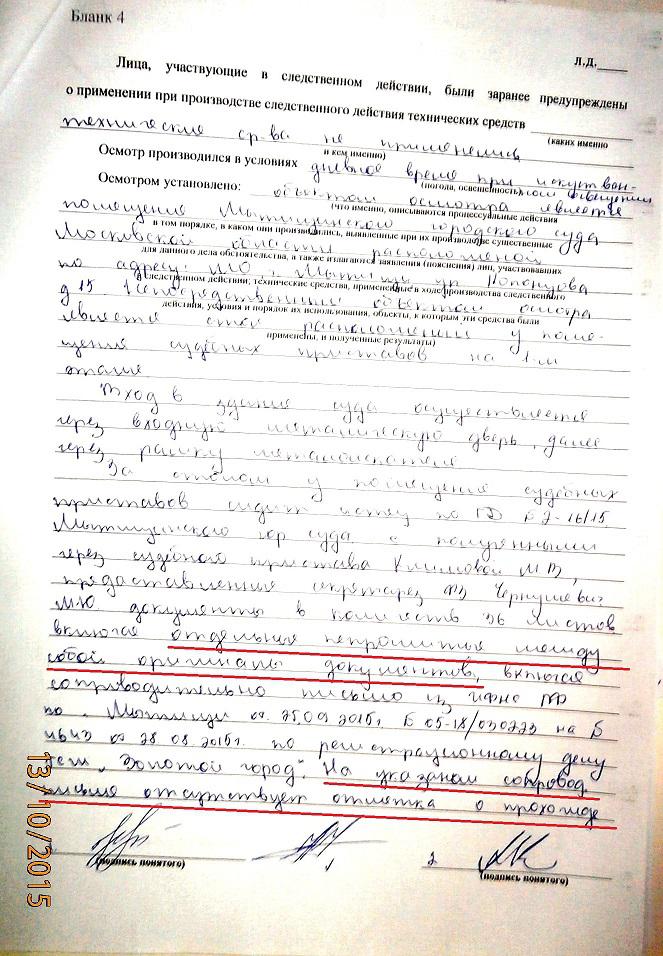 Бланк 4
л.д.____
Лица, участвующие в следственном действии, были заранее предупреждены
о применении при производстве следственного действия технических средств
технические ср-ва не применялись
(каких именно
и кем именно)
Осмотр производился в условиях дневное время при искуствен-
ном освещении
(погода, освещенность)
Осмотром установлено: объектом осмотра является
(что именно, описываются процессуальные действия
помещение Мытищинского городского суда
в том порядке, в каком они производились, выявленные при их производстве существенные
Московской области расположенной
для данного дела обстоятельства, а также излагаются заявления (пояснения) лиц, участвовавших
по адресу: МО, г. Мытищи
в следственном действии; технические средства, примененные в ходе производства следственного
д 15 Непосредственным объектом осмотра
действия, условия и порядок их использования, объекты, к которым эти средства были
является стол расположенный у поме-
применены, и полученные результаты)
щения судебных приставов на 1-м
этаже
Вход в здание суда осуществляется
через входную металическую дверь, далее
через рамку металоискателя
За столом у помещения судебных
приставов сидит истец по ГД 2-16/15
Мытищинского гор суда с полученными
через судебного пристава Климовой М В,
предоставленные секретарем
М.Ю. документы в количеств 36 листов
включая отдельные непрошитые между
собой оригиналы документов, включая
сопроводительно письмо из ИФНС РФ
по г. Мытищи от 25.09 2015г № 05-18/030223 на №
от 28.08.2015г. по регистрационному делу
"Золотой город". На указаном сопровод.
письме отсутствует отметка о
1
(подпись понятого)
2
(подпись понятого)
13/10/2015